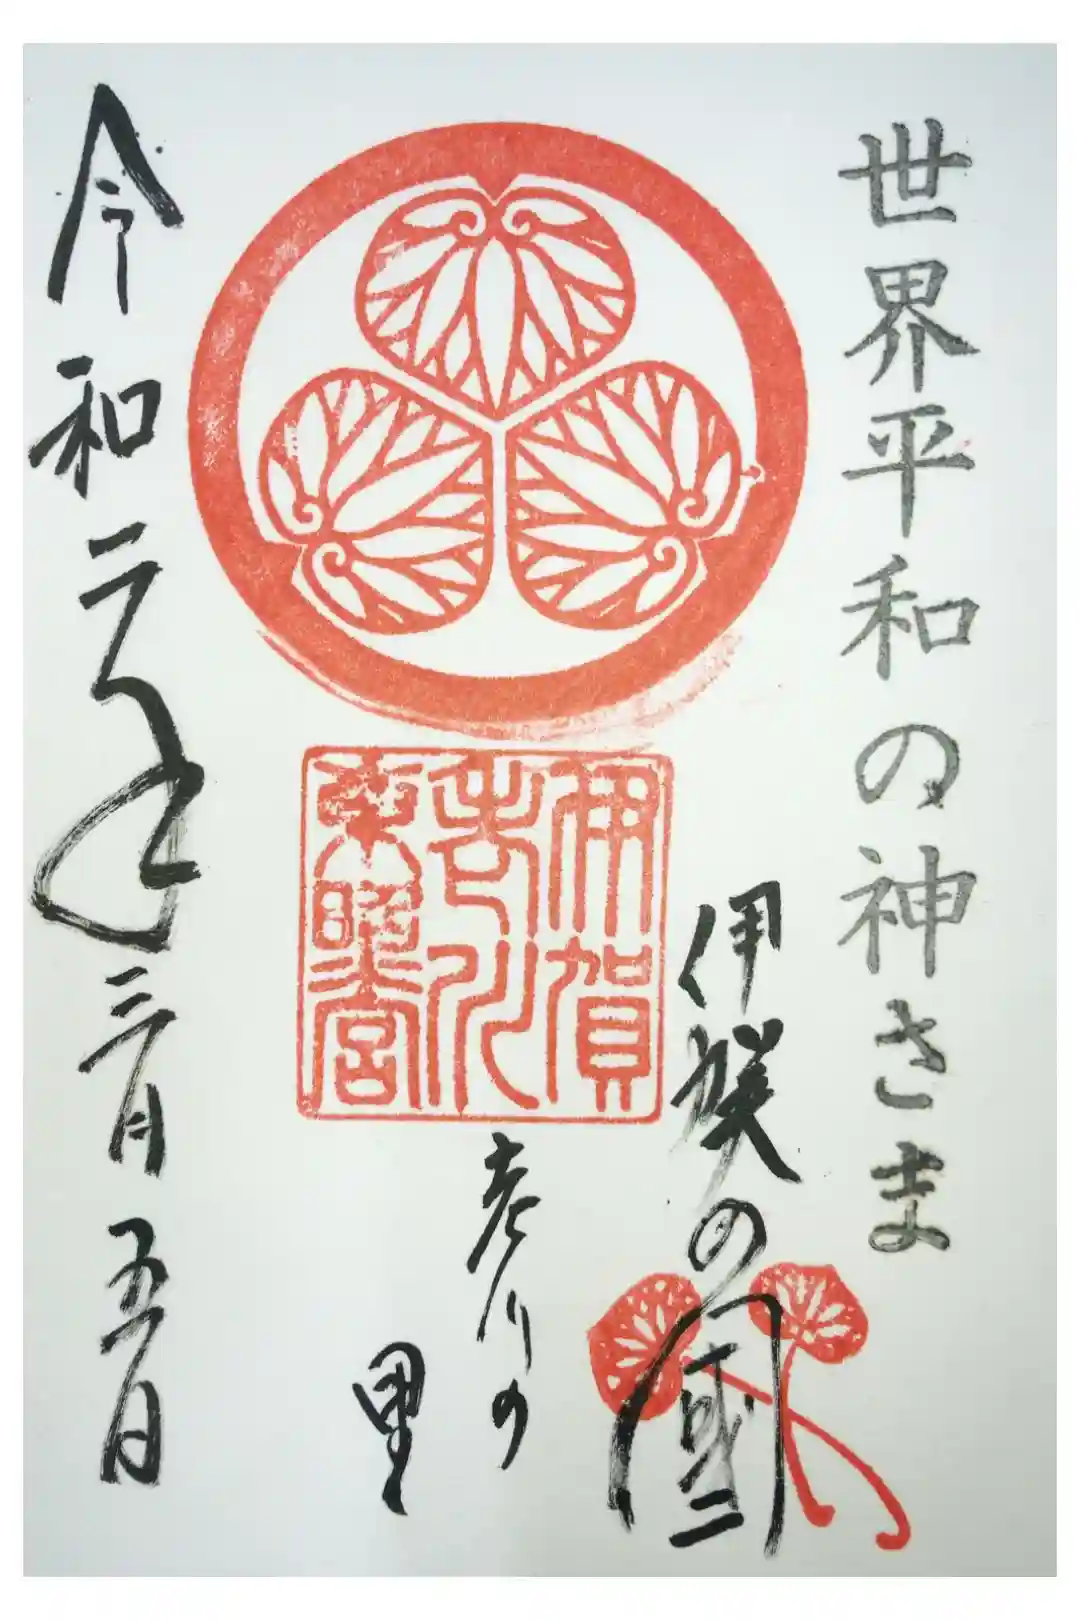 世界平和の神さま
伊賀の國
伊賀
老川
東照宮
老川の
里
令和二年三月五日